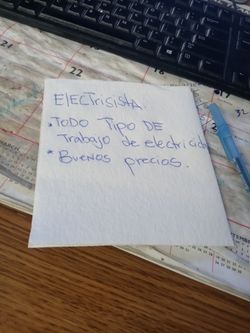 ELECTRISISTA
• TODO TIPO DE
Trabajo de electricidad
* BUENOS precios.
22